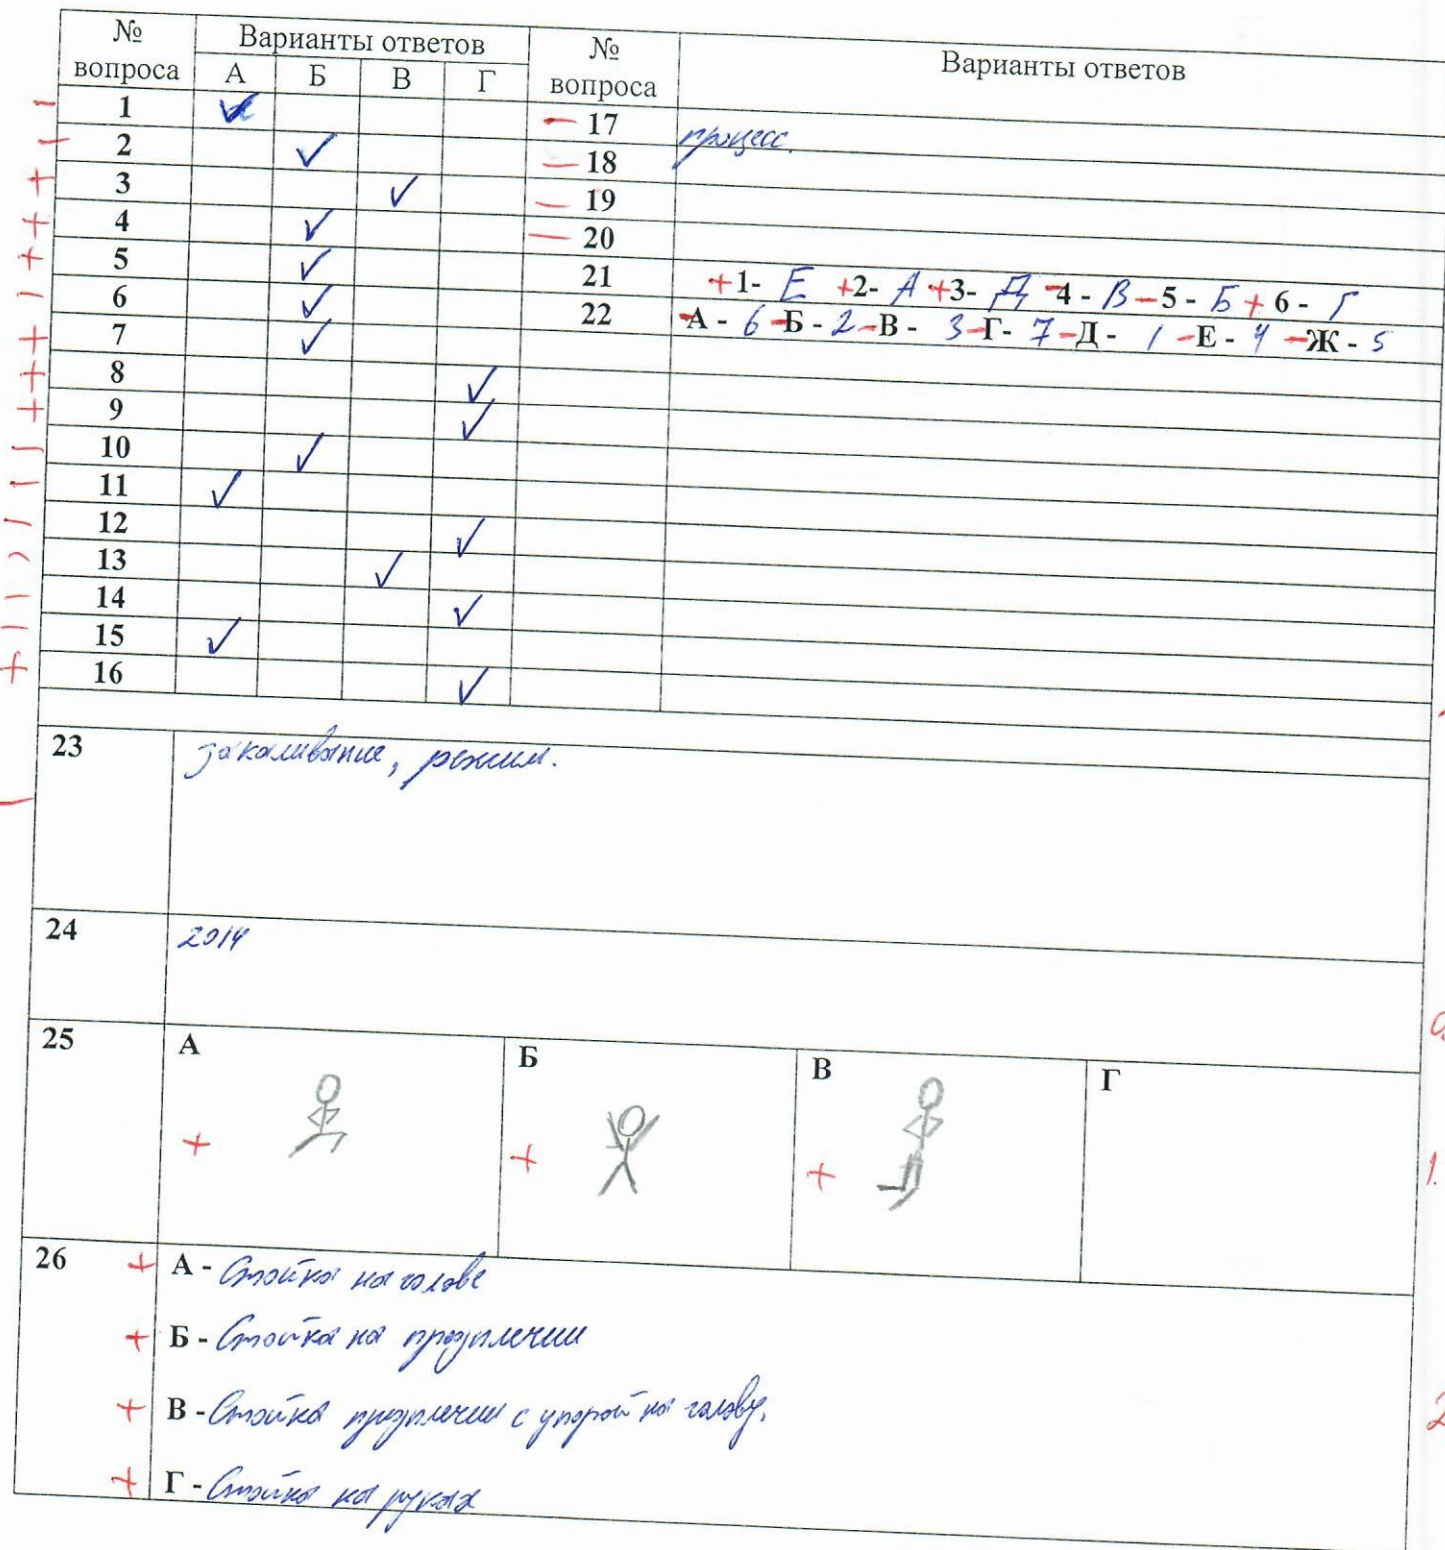 № вопроса Варианты ответов № вопроса Варианты ответов
А Б В Г
1 ✓ − 17 процесс.
2 ✓ − 18
3 ✓ − 19
4 ✓ − 20
5 ✓ 21 +1- Е +2- А +3- Д -4 - В -5 - Б +6 - Г
6 ✓ 22 -А - 6 -Б - 2 -В - 3 -Г- 7 -Д - 1 -Е - 4 -Ж - 5
7 ✓
8 ✓
9 ✓
10 ✓
11 ✓
12 ✓
13 ✓
14 ✓
15 ✓
16 ✓
23 закаливание, режим.
24 2014
25 А Б В Г
+ + +
26 + А - Стойка на голове
+ Б - Стойка на предплечии
+ В - Стойка предплечии с упорой на голову.
+ Г - Стойка на руках